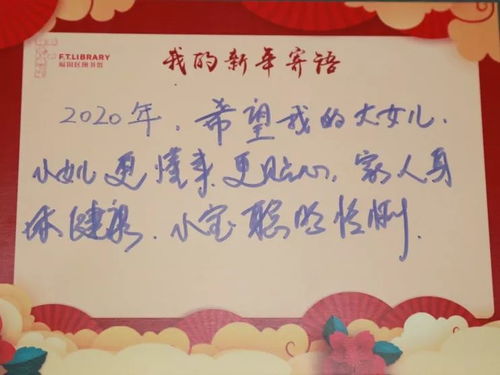 F.T.LIBRARY
福田区图书馆
我的新年寄语
2020年，希望我的大女儿、
小女儿更懂事更贴心，家人身
体健康，小宝聪明伶俐．